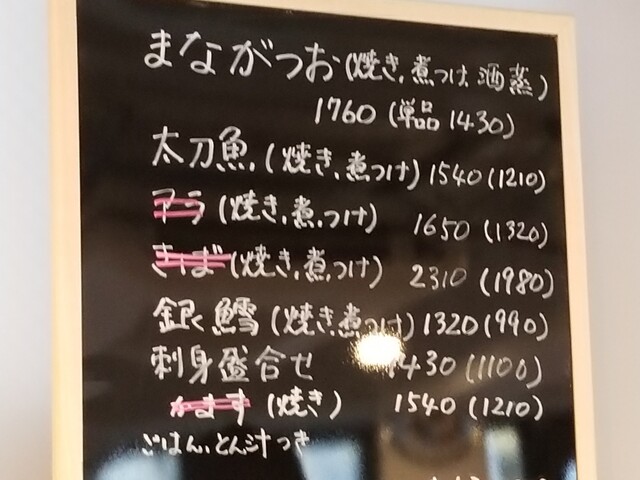 まながつお(焼き,煮つけ,酒蒸)
1760 (単品 1430)
太刀魚,(焼き,煮つけ) 1540(1210)
アラ(焼き,煮,つけ) 1650 (1320)
きはば(焼き,煮,つけ) 2310 (1980)
銀鱈(焼き煮つけ) 1320(990)
刺身盛合せ 1430(1100)
かます (焼き) 1540 (1210)
ごはん、とん汁つき